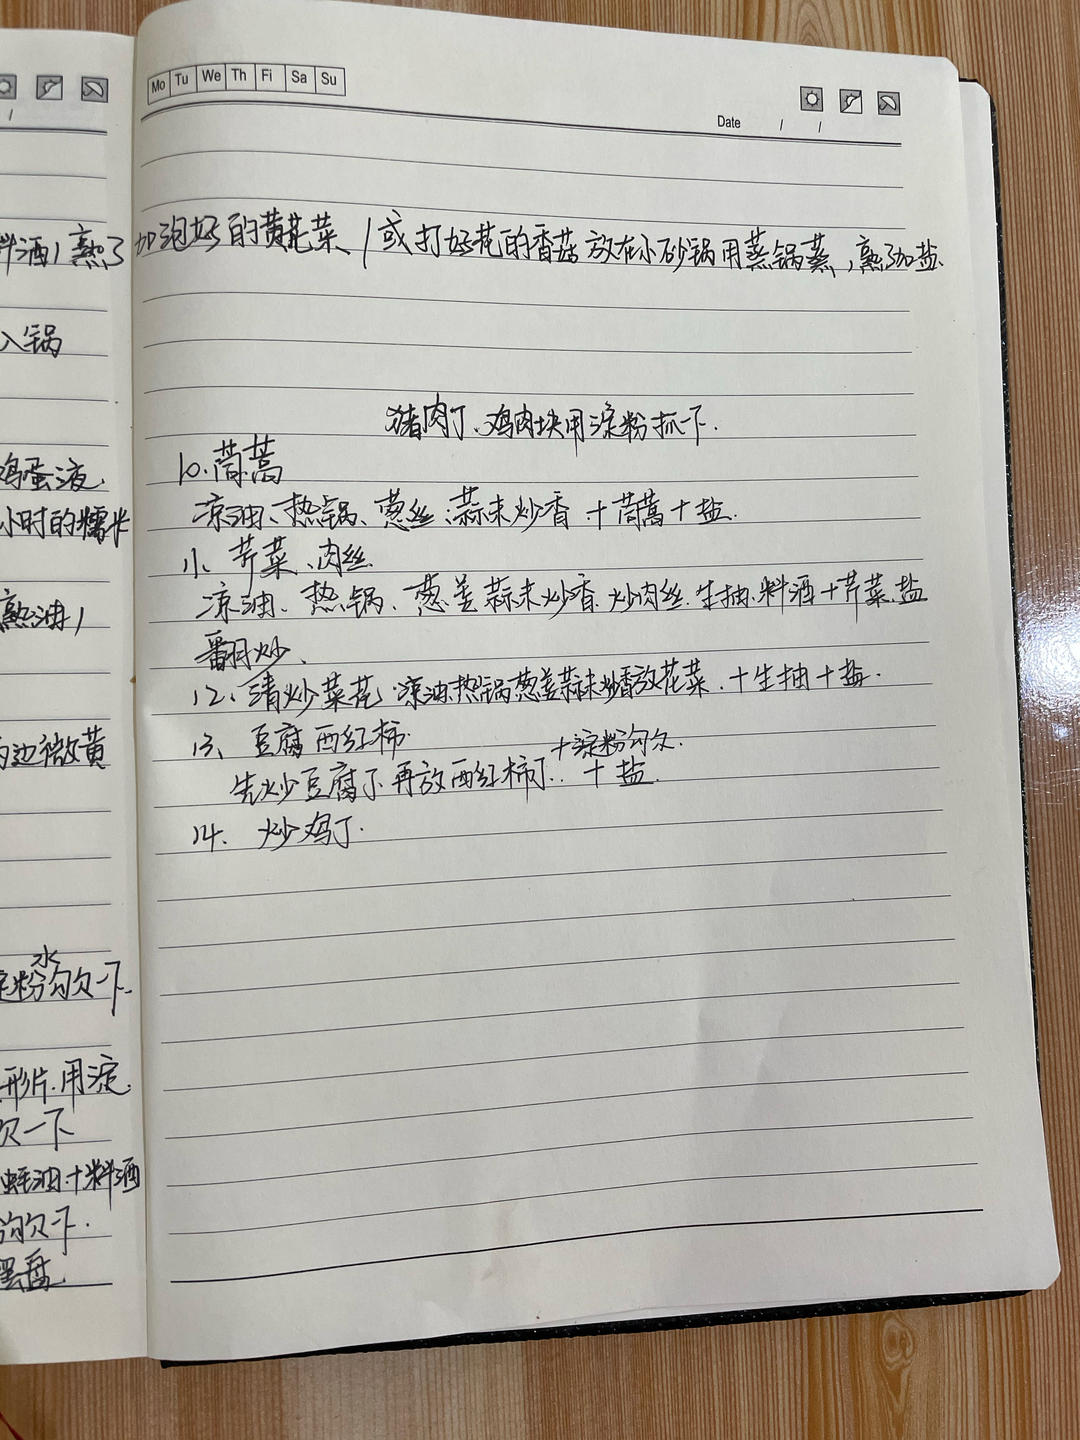 Mo Tu We Th Fi Sa Su
Date / /
料酒,熟了
入锅
鸡蛋液.
小时的糯米
熟油,
两边微黄
水
淀粉勾欠一下.
形片.用淀.
欠一下
蚝油+料酒
勾欠下.
加泡好的黄花菜、/或打好花的香菇放在小砂锅用蒸锅蒸,熟了加盐.
猪肉丁、鸡肉块用淀粉抓一下.
10.茼蒿
凉油、热锅、葱丝.蒜末炒香 +茼蒿+盐.
11、芹菜、肉丝.
凉油、热锅、葱姜蒜末炒香.炒肉丝.生抽.料酒+芹菜.盐
翻炒、
12、清炒菜花,凉油热锅葱姜蒜末炒香放花菜.+生抽+盐.
13、豆腐西红柿.
+淀粉勾欠.
先炒豆腐丁再放西红柿丁..+盐.
14.炒鸡丁.